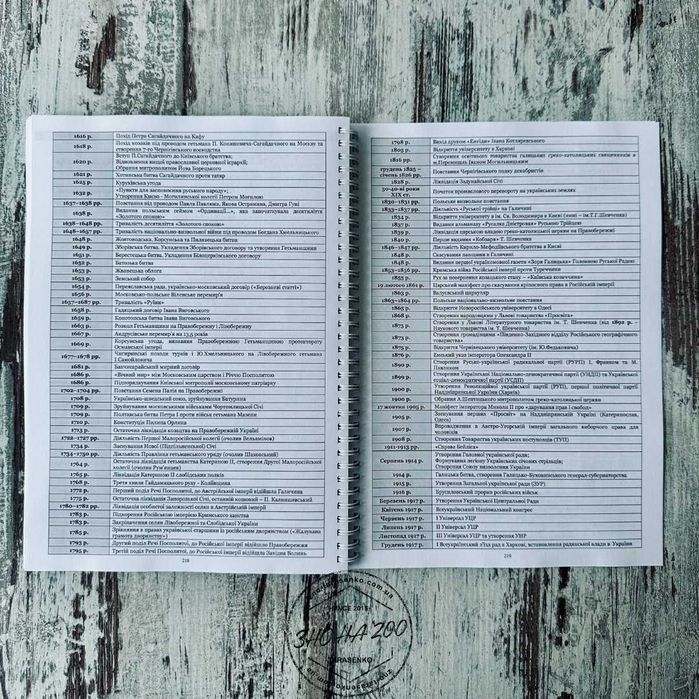 1616 р. Похід Петра Сагайдачного на Кафу
1618 р. Похід козаків під проводом гетьмана П. Конашевича-Сагайдачного на Москву та
створення 7-го Чернігівського воєводства
1620 р. Вступ П.Сагайдачного до Київського братства;
Відновлення вищої православної церковної ієрархії;
Обрання митрополитом Йова Борецького
1621 р. Хотинська битва Сагайдачного проти татар
1625 р. Куруківська угода
1632 р. «Пункти для заспокоєння руського народу»;
Утворення Києво - Могилянської колегії Петром Могилою
1637–1638 рр. Повстання під проводом Павла Павлюка, Якова Острянина, Дмитра Гуні
1638 р. Видання польським сеймом «Ординації…», яка започаткувала десятиліття
«Золотого спокою»
1638–1648 рр. Тривалість десятиліття «Золотого спокою»
1648–1657 рр. Тривалість національно-визвольної війни під проводом Богдана Хмельницького
1648 р. Жовтоводська, Корсунська та Пилявецька битва
1649 р. Зборівська битва. Укладення Зборівського договору та утворення Гетьманщини
1651 р. Берестецька битва. Укладення Білоцерківського договору
1652 р. Батозька битва
1653 р. Жванецька облога
1653 р. Земський собор
1654 р. Переяславська рада, українсько-московський договір («Березневі статті»)
1656 р. Московсько-польське Віленське перемир'я
1657–1687 рр. Тривалість «Руїни»
1658 р. Гадяцький договір Івана Виговського
1659 р. Конотопська битва Івана Виговського
1663 р. Розкол Гетьманщини на Правобережну і Лівобережну
1667 р. Андрусівське перемир'я на 13,5 років
1669 р. Корсунська угода, визнання Правобережною Гетьманщиною протекторату
Османської імперії
1677–1678 рр. Чигиринські походи турків і Ю.Хмельницького на Лівобережного гетьмана
І.Самойловича
1681 р. Бахчисарайський мирний договір
1686 р. «Вічний мир» між Московським царством і Річчю Посполитою
1686 р. Підпорядкування Київської митрополії московському патріарху
1702–1704 рр. Повстання Семена Палія на Правобережжі
1708 р. Українсько-шведський союз, зруйнування Батурина
1709 р. Зруйнування московськими військами Чортомлицької Січі
1709 р. Полтавська битва Петра І проти військ гетьмана Мазепи
1710 р. Конституція Пилипа Орлика
1713 р. Остаточна ліквідація козацтва на Правобережній Україні
1722–1727 рр. Діяльність Першої Малоросійської колегії (очолив Вельямінов)
1734 р. Заснування Нової (Підпільненської) Січі
1734–1750 рр. Діяльність Правління гетьманського уряду (очолив Шаховський)
1764 р. Остаточна ліквідація гетьманства Катериною ІІ, створення Другої Малоросійської
колегії (очолив Рум'янцев)
1765 р. Ліквідація Катериною ІІ слобідських полків
1768 р. Третя хвиля Гайдамацького руху - Коліївщина
1772 р. Перший поділ Речі Посполитої, до Австрійської імперії відійшла Галичина
1775 р. Остаточна ліквідація Запорозької Січі, останній кошовий – П. Калнишевський
1780–1782 рр. Ліквідація особистої залежності селян в Австрійській імперії
1783 р. Підкорення Російською імперією Кримського ханства
1783 р. Закріпачення селян Лівобережної та Слобідської України
1785 р. Зрівняння в правах української старшини із російським дворянством («Жалувана
грамота дворянству»)
1793 р. Другий поділ Речі Посполитої, до Російської імперії відійшло Правобережжя
1795 р. Третій поділ Речі Посполитої, до Російської імперії відійшла Західна Волинь
218
1798 р. Вихід друком «Енеїди» Івана Котляревського
1805 р. Відкриття університету в Харкові
1816 рр. Створення освітнього товариства галицьких греко-католицьких священників
в м.Перемишль Іваном Могильницьким
грудень 1825 –
січень 1826 рр. Повстання Чернігівського полку декабристів
1828 р. Ліквідація Задунайської Січі
30-40-ві роки
ХІХ ст. Початок промислового перевороту на українських землях
1830–1831 рр. Польське визвольне повстання
1833–1837 рр. Діяльність «Руської трійці» на Галичині
1834 р. Відкриття університету ім. Св. Володимира в Києві (нині – ім.Т.Г.Шевченка)
1837 р. Видання альманаху «Русалка Дністровая» Руською Трійцею
1839 р. Ліквідація царською владою греко-католицької церкви на Правобережжі
1840 р. Перше видання «Кобзаря» Т. Шевченка
1846–1847 рр. Діяльність Кирило-Мефодіївського братства в Києві
1848 р. Скасування панщини в Галичині
1848 р. Видання першої україномовної газети «Зоря Галицька» Головною Руською Радою
1853–1856 рр. Кримська війна Російської імперії проти Туреччини
1855 р. Рух за повернення козацького стану – «Київська козаччина»
19 лютого 1861 р. Царський маніфест про скасування кріпосного права в Російській імперії
1863 р. Валуєвський циркуляр
1863–1864 рр. Польське національно-визвольне повстання
1865 р. Відкриття Новоросійського університету в Одесі
1868 р. Створення народовцями у Львові товариства «Просвіта»
1873 р. Створення у Львові Літературного товариства ім. Т. Шевченка (від 1892 р. -
Наукового товариства ім. Т. Шевченка)
1873 р. Створення громадівцями «Південно-Західного відділу Російського географічного
товариства»
1875 р. Відкриття Чернівецького університету (ім. Ю.Федьковича)
1876 р. Емський указ імператора Олександра ІІ
1890 р. Створення Русько-української радикальної партії (РУРП) І. Франком та М.
Павликом
1899 р. Створення Української Національно-демократичної партії (УНДП) та Української
соціал-демократичної партії (УСДП)
1900 р. Утворення Революційної української партії (РУП), першої політичної партії
Наддніпрянської України (Харків)
1900 р. Обрання А.Шептицького митрополитом греко-католицької церкви
17 жовтня 1905 р. Маніфест імператора Миколи ІІ про «дарування прав і свобод»
1905 р. Заснування перших «Просвіт» на Наддніпрянській Україні (Катеринослав,
Одеса)
1907 р. Впровадження в Австро-Угорській імперії загального виборчого права для
чоловіків
1908 р. Створення Товариства українських поступовців (ТУП)
1911-1913 рр. «Справа Бейліса»
Серпень 1914 р. Утворення Головної української ради;
Формування легіону Українських січових стрільців;
Створення Союзу визволення України
1914 р. Галицька битва, створення Галицько-Буковинського генерал-губернаторства
1915 р. Утворення Загальної української ради (ЗУР)
1916 р. Брусиловський прорив російських військ
Березень 1917 р. Утворення Української Центральної Ради
Квітень 1917 р. Всеукраїнський Національний конгрес
Червень 1917 р. І Універсал УЦР
Липень 1917 р. ІІ Універсал УЦР
Листопад 1917 р. ІІІ Універсал УЦР та утворення УНР
Грудень 1917 р. І Всеукраїнський з'їзд рад в Харкові, встановлення радянської влади в Україні
219
SINCE 2015
ЗНО НА 200
TARASENKO